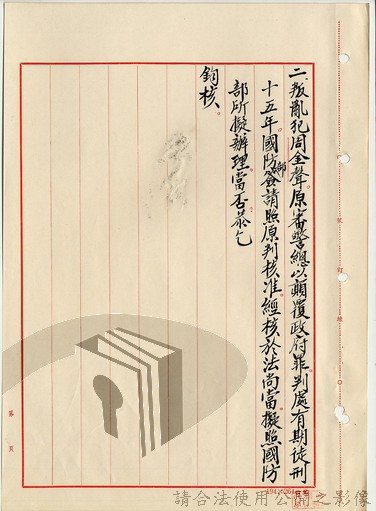 二、叛亂犯周金聲原審警總以顛覆政府罪判處有期徒刑
十五年國防部簽請照原判核准經核於法尚當擬照國防
部所擬辦理當否恭乞
鈞核。
第 頁
請合法使用公開之影像